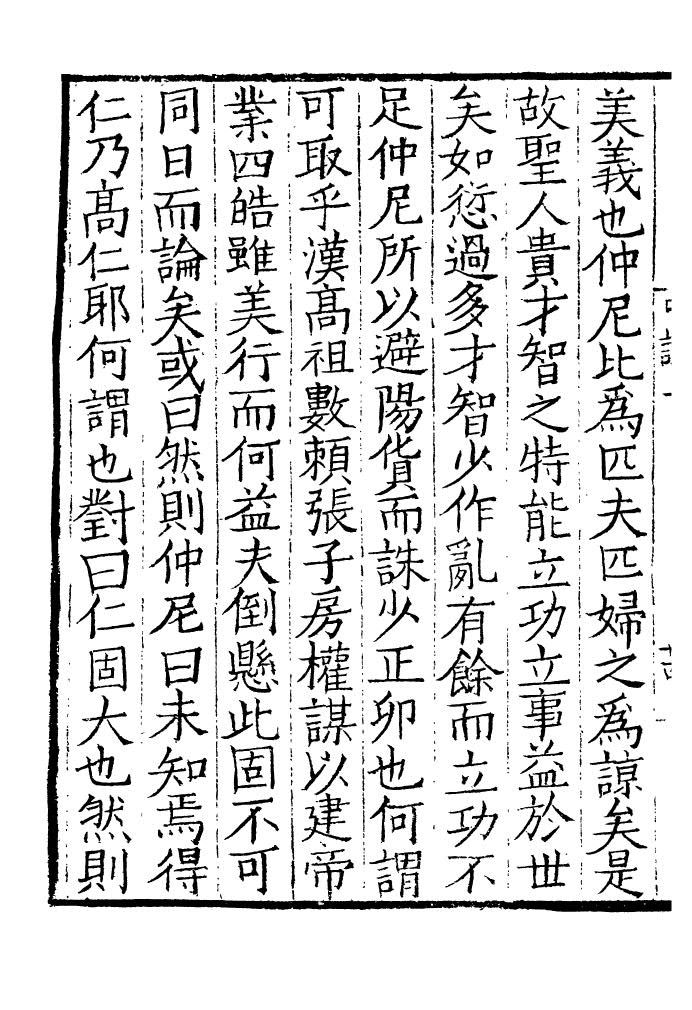 美義也仲尼比爲匹夫匹婦之爲諒矣是
故聖人貴才智之特能立功立事益於世
矣如愆過多才智少作亂有餘而立功不
足仲尼所以避陽貨而誅少正卯也何謂
可取乎漢高祖數賴張子房權謀以建帝
業四皓雖美行而何益夫倒懸此固不可
同日而論矣或曰然則仲尼曰未知焉得
仁乃高仁耶何謂也對曰仁固大也然則